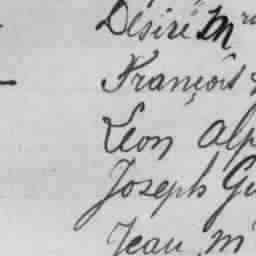 Désiré M
François
Léon Alp
Joseph Gu
Jean M